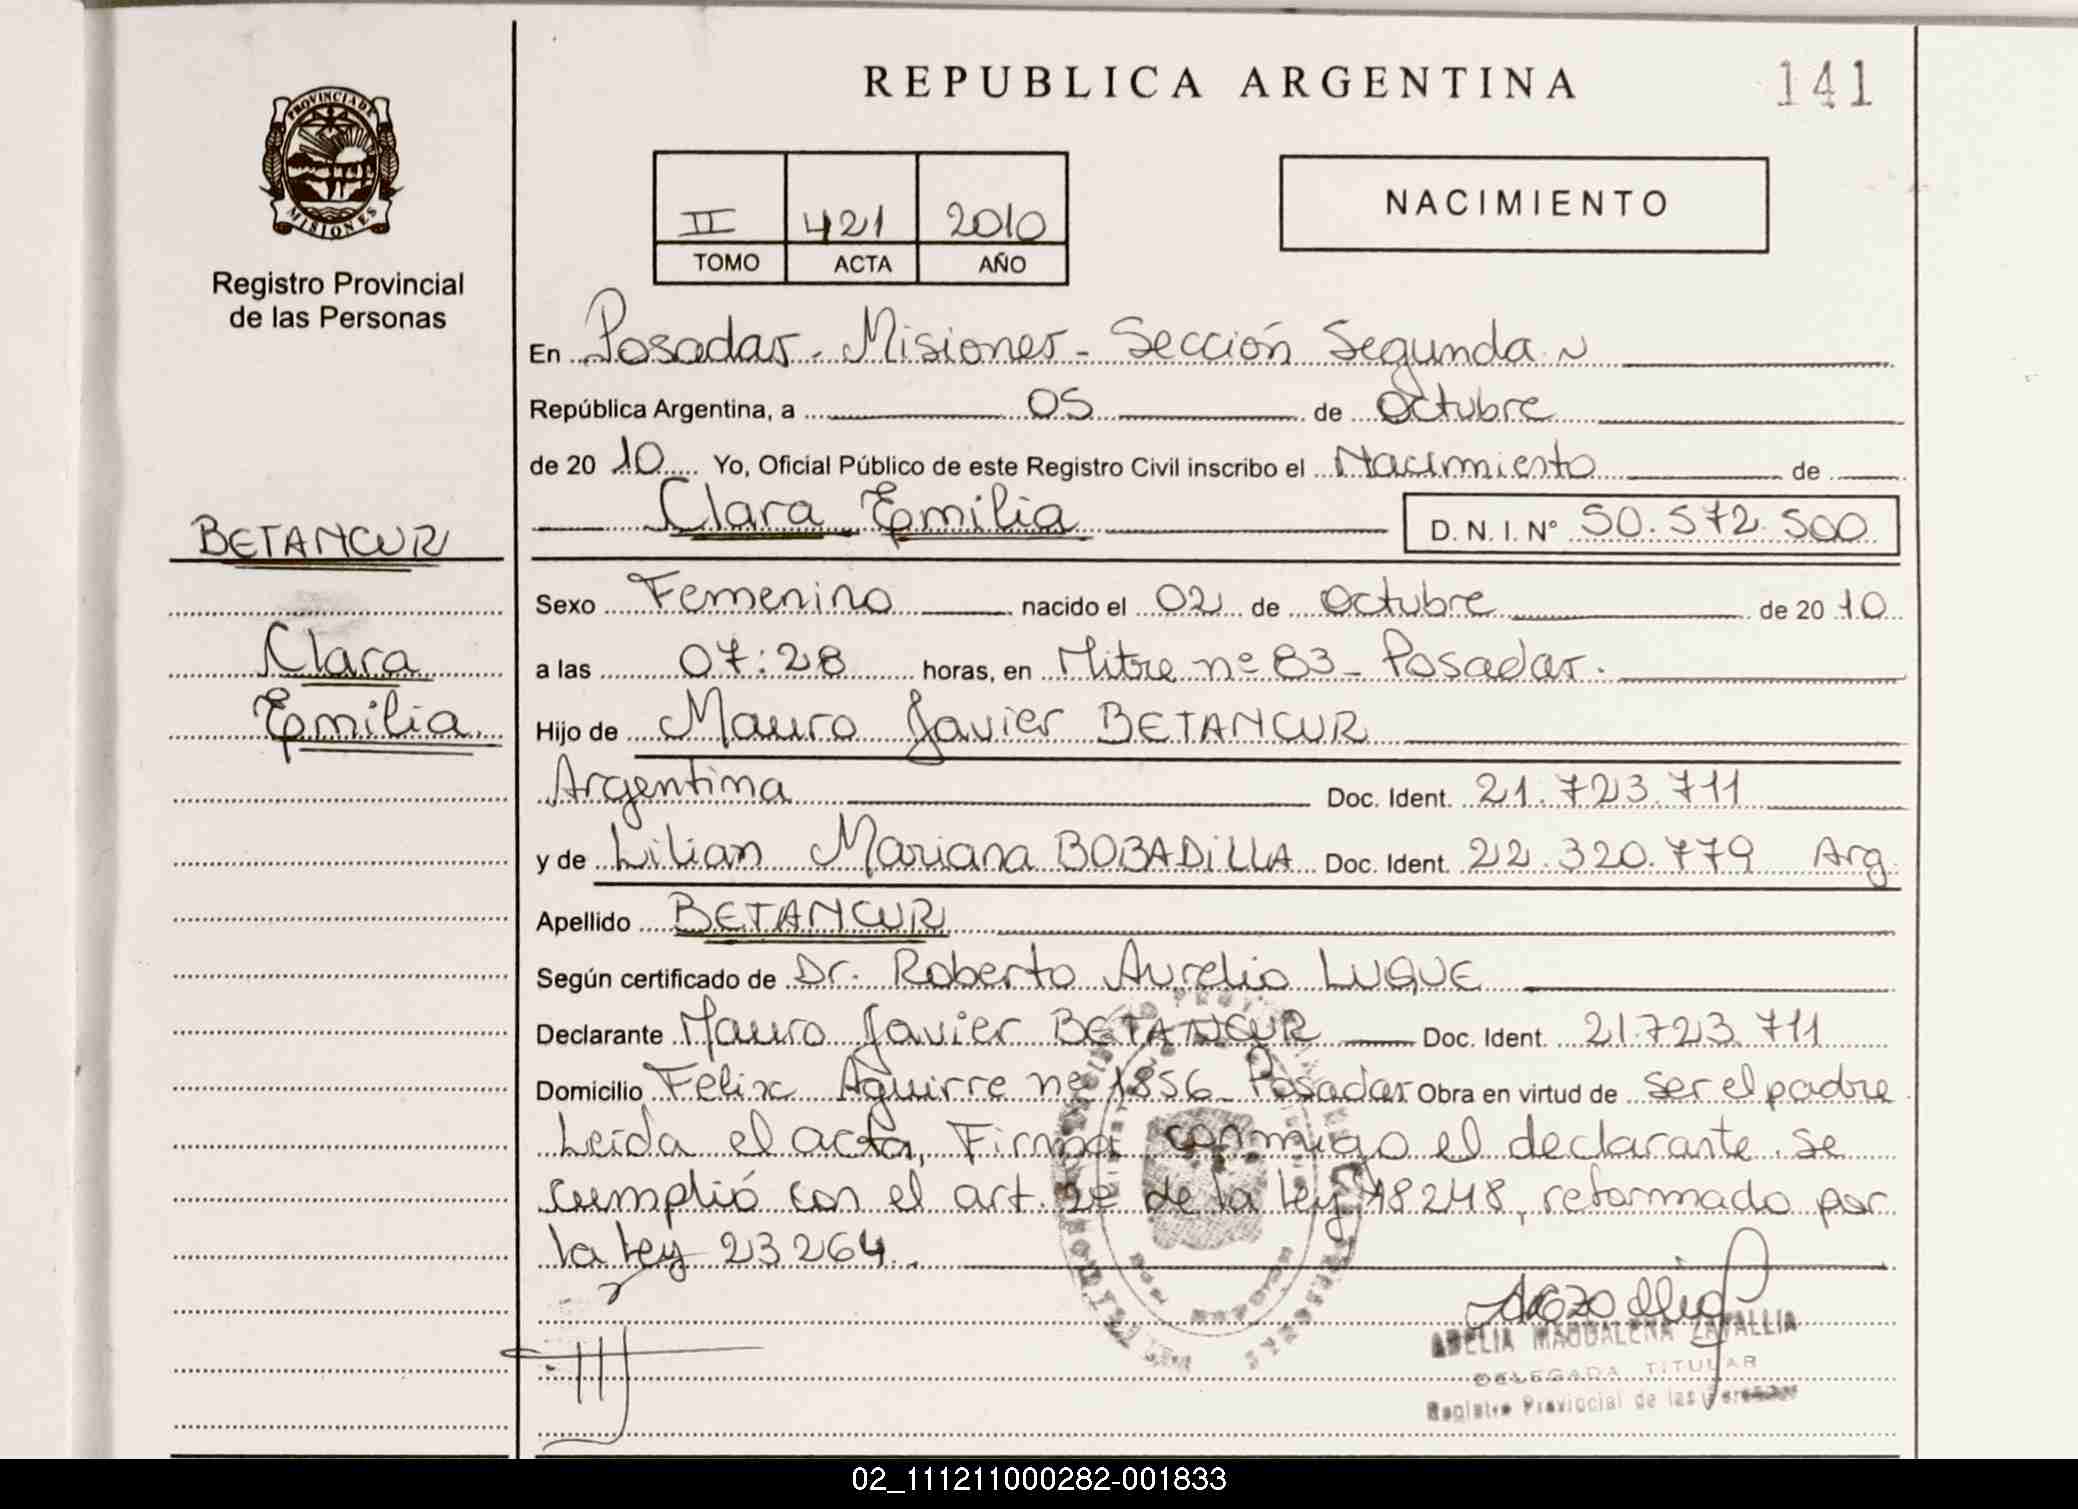 REPUBLICA ARGENTINA
141
PROVINCIA DE
MISIONES
Registro Provincial
de las Personas
II 421 2010
TOMO ACTA AÑO
NACIMIENTO
En Posadas - Misiones - Sección Segunda
República Argentina, a 05 de Octubre
de 2010 Yo, Oficial Público de este Registro Civil inscribo el Nacimiento de
Clara Emilia D. N. I. Nº 50.572.500
BETANCUR
Clara
Emilia
Sexo Femenino nacido el 02 de Octubre de 2010
a las 07:28 horas, en Mitre nº 83 - Posadas.
Hijo de Mauro Javier BETANCUR
Argentina Doc. Ident. 21.723.711
y de Lilian Mariana BOBADILLA Doc. Ident. 22.320.779 Arg.
Apellido BETANCUR
Según certificado de Dr. Roberto Aurelio LUQUE
Declarante Mauro Javier BETANCUR Doc. Ident. 21.723.711
Domicilio Felix Aguirre nº 1856 - Posadas Obra en virtud de ser el padre
Leída el acta, Firma conmigo el declarante. Se
cumplió con el art. 2º de la Ley 18248, reformado por
la Ley 23264.
ADELIA MAGDALENA ZAFALLIA
DELEGADA TITULAR
Registro Provincial de las Personas
02_111211000282-001833